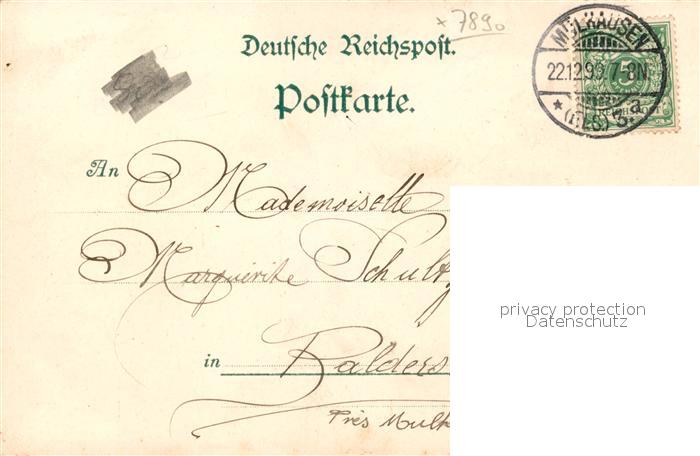 * 7890
Deutsche Reichspost.
Postkarte.
MÜLHAUSEN
22.12.99.7-8N.
* (ELS) 3.a
5
An Mademoiselle
Marguérite Schultz
in Balders
Près Mulh
privacy protection
Datenschutz